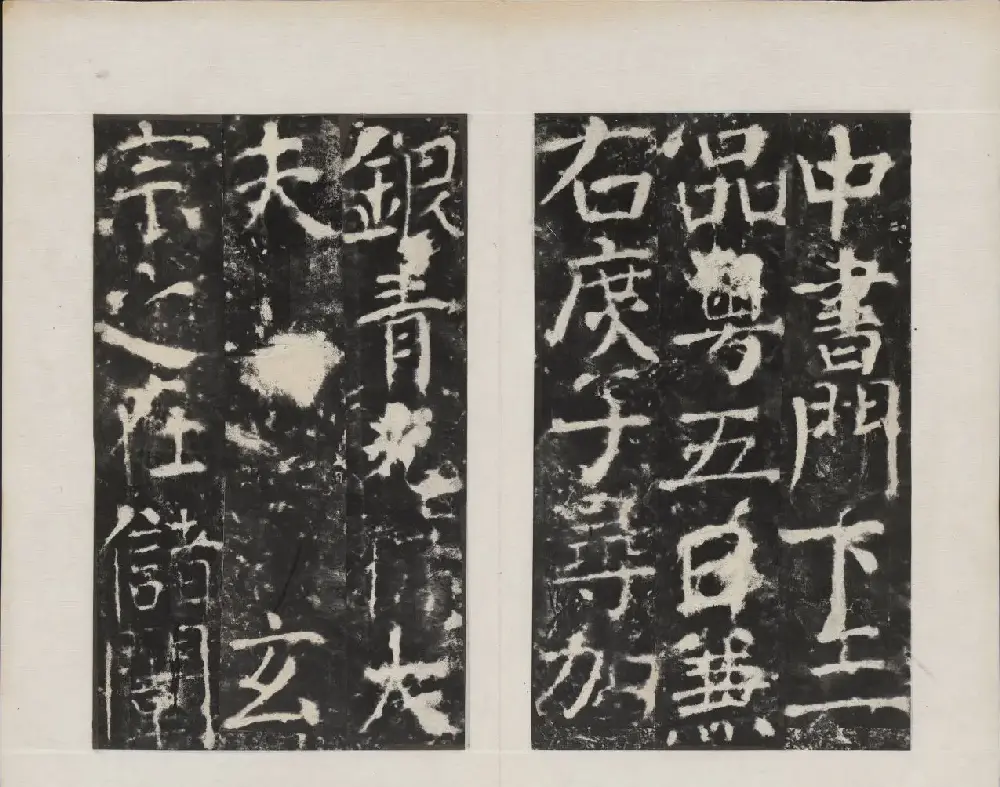 中書門下三
品粵五日兼
右庶子尋加
銀青光大
夫 玄
宗之在儲闈